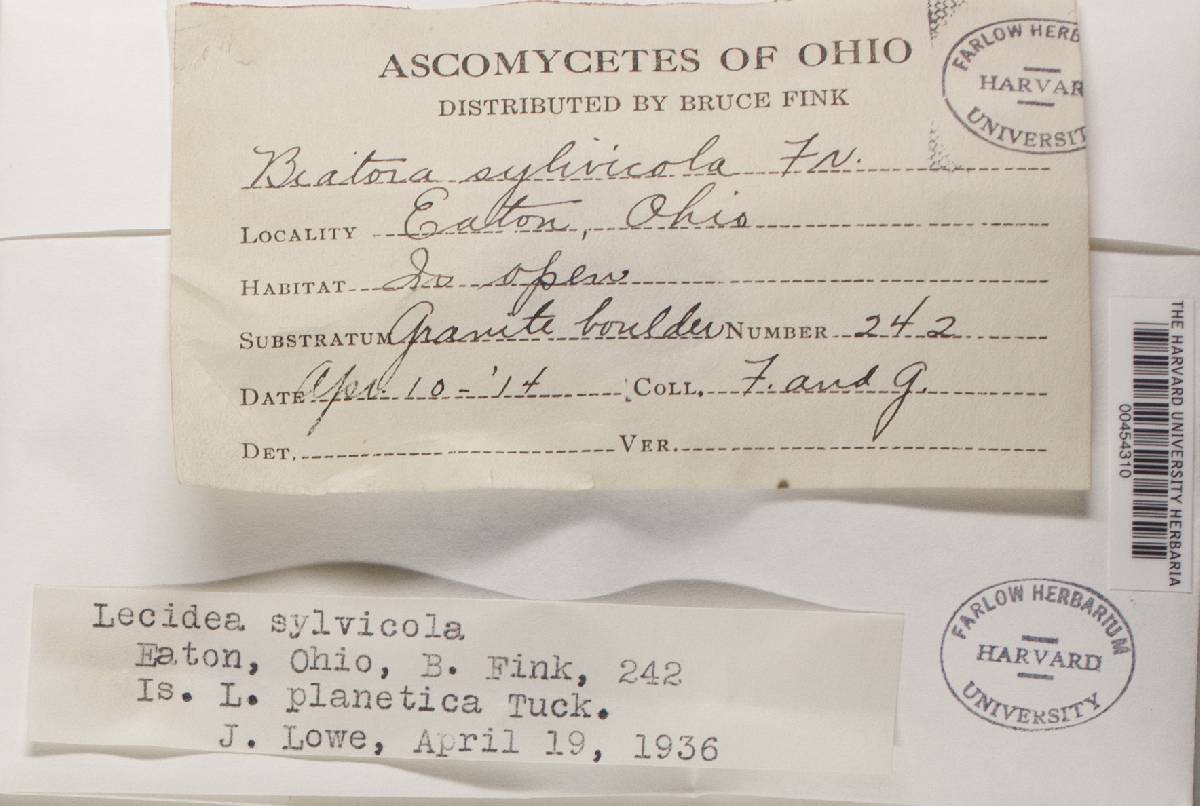 ASCOMYCETES OF OHIO
DISTRIBUTED BY BRUCE FINK
Biatora sylvicola Fr.
LOCALITY Eaton, Ohio
HABITAT In open
SUBSTRATUM Granite boulder NUMBER 242
DATE Apr. 10-'14 COLL. F. and G.
DET. VER.
FARLOW HERB
HARVAR
UNIVERSIT
THE HARVARD UNIVERSITY HERBARIA
00454310
Lecidea sylvicola
Eaton, Ohio, B. Fink, 242
Is. L. planetica Tuck.
J. Lowe, April 19, 1936
FARLOW HERBARIUM
HARVARD
UNIVERSITY